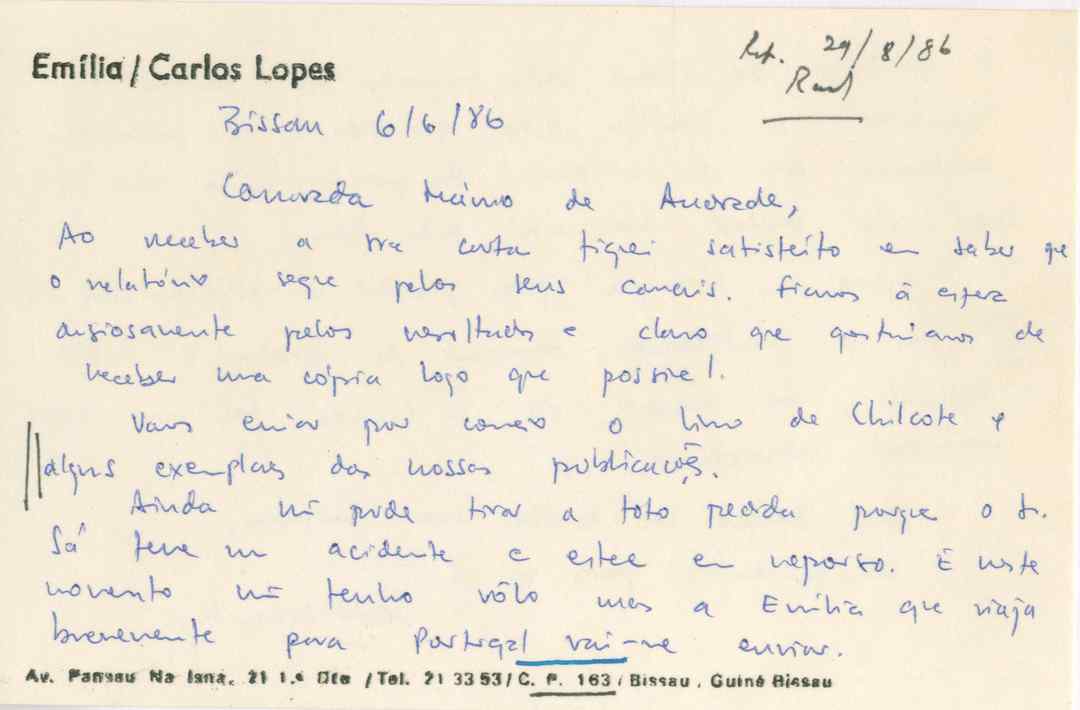 Emília / Carlos Lopes
Rep. 29/8/86
Bissau 6/6/86
Camarada Mário de Andrade,
Ao receber a tua carta fiquei satisfeito em saber que
o relatório segue pelos teus canais. Ficamos à espera
ansiosamente pelos resultados e claro que gostaríamos de
receber uma cópia logo que possivel.
Vamos enviar por correio o livro de Chilcote e
alguns exemplares das nossas publicações.
Ainda não pude tirar a foto pedida porque o Sr.
Sá teve um acidente e esteve em repouso. E neste
momento não tenho rôlo mas a Emília que viaja
brevemente para Portugal vai-me enviar.
Av. Pansau Na Isna, 21 1.º Dto / Tel. 21 33 53 / C. P. 163 / Bissau, Guiné Bissau